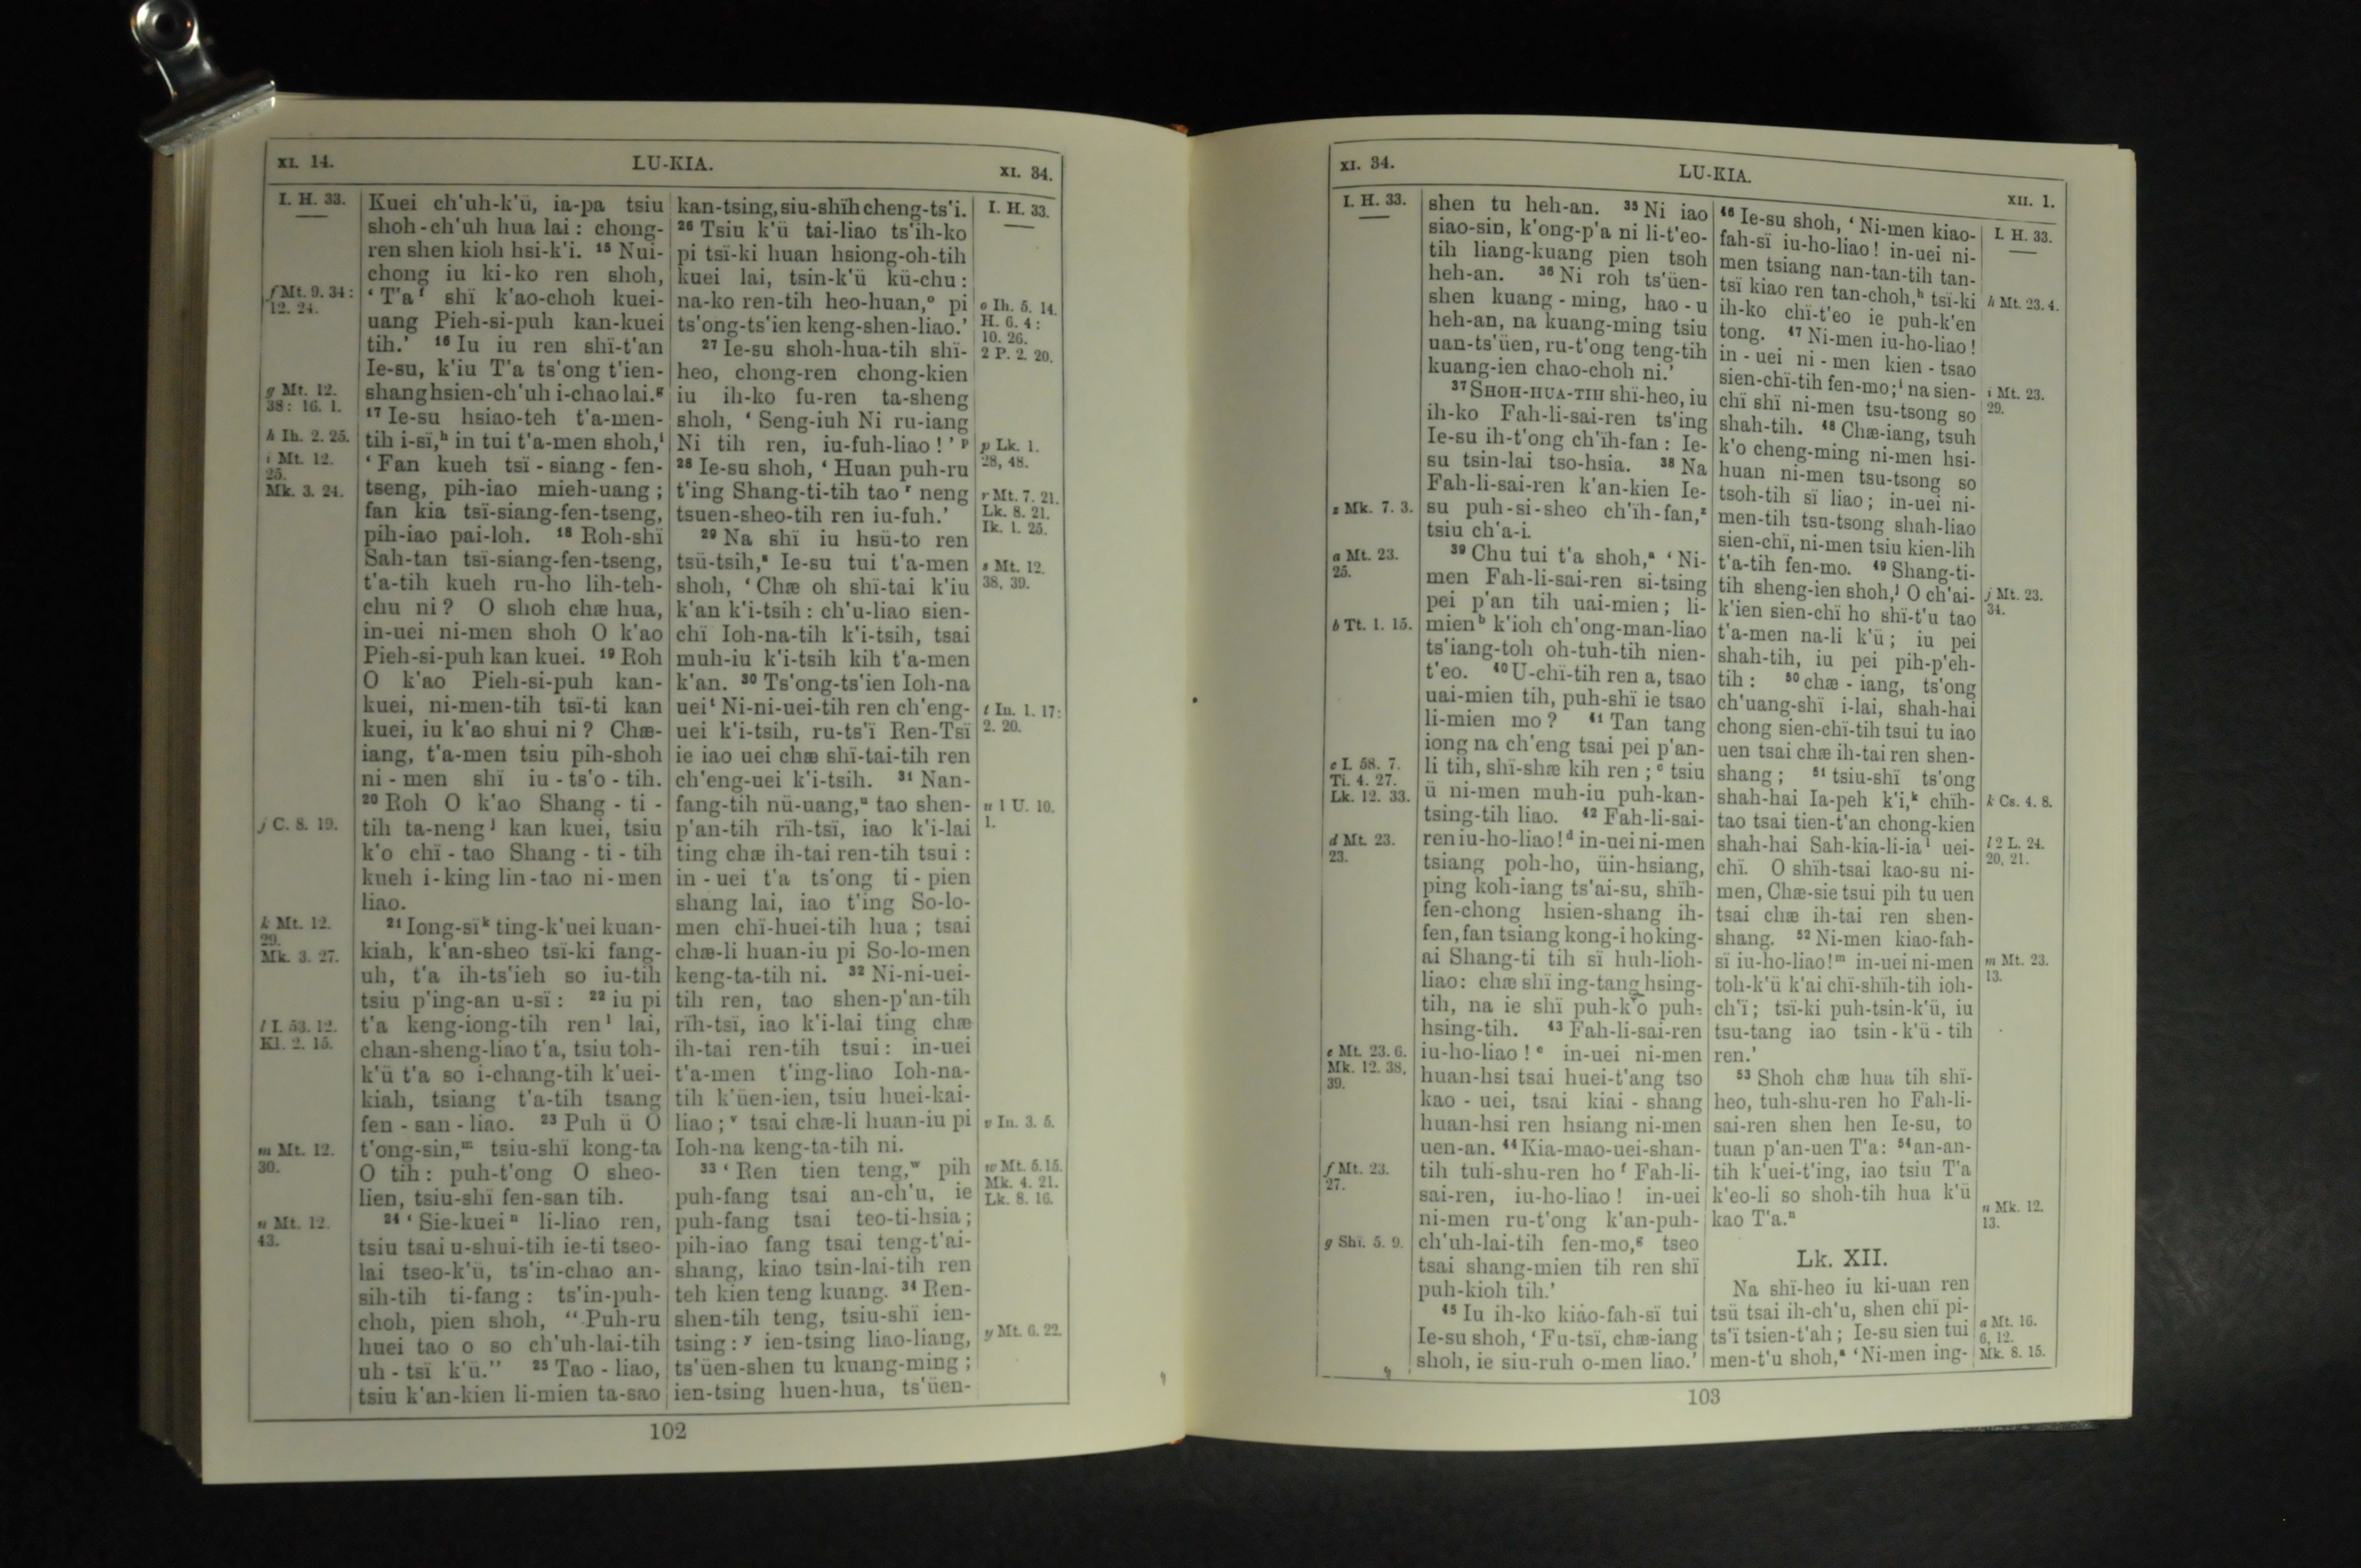 XI. 14.
LU-KIA.
XI. 34.
I. H. 33.
f Mt. 9. 34:
12. 24.
g Mt. 12.
38: 16. 1.
h Ih. 2. 25.
i Mt. 12.
25.
Mk. 3. 24.
j C. 8. 19.
k Mt. 12.
29.
Mk. 3. 27.
l I. 53. 12.
Kl. 2. 15.
m Mt. 12.
30.
n Mt. 12.
43.
Kuei ch'uh-k'ü, ia-pa tsiu
shoh-ch'uh hua lai: chong-
ren shen kioh hsi-k'i. 15 Nui-
chong iu ki-ko ren shoh,
'T'a f shï k'ao-choh kuei-
uang Pieh-si-puh kan-kuei
tih.' 16 Iu iu ren shï-t'an
Ie-su, k'iu T'a ts'ong t'ien-
shang hsien-ch'uh i-chao lai. g
17 Ie-su hsiao-teh t'a-men-
tih i-sï, h in tui t'a-men shoh, i
'Fan kueh tsï-siang-fen-
tseng, pih-iao mieh-uang;
fan kia tsï-siang-fen-tseng,
pih-iao pai-loh. 18 Roh-shï
Sah-tan tsï-siang-fen-tseng,
t'a-tih kueh ru-ho lih-teh-
chu ni? O shoh chæ hua,
in-uei ni-men shoh O k'ao
Pieh-si-puh kan kuei. 19 Roh
O k'ao Pieh-si-puh kan-
kuei, ni-men-tih tsï-ti kan
kuei, iu k'ao shui ni? Chæ-
iang, t'a-men tsiu pih-shoh
ni-men shï iu-ts'o-tih.
20 Roh O k'ao Shang-ti-
tih ta-neng j kan kuei, tsiu
k'o chï-tao Shang-ti-tih
kueh i-king lin-tao ni-men
liao.
21 Iong-sï k ting-k'uei kuan-
kiah, k'an-sheo tsï-ki fang-
uh, t'a ih-ts'ieh so iu-tih
tsiu p'ing-an u-sï: 22 iu pi
t'a keng-iong-tih ren l lai,
chan-sheng-liao t'a, tsiu toh-
k'ü t'a so i-chang-tih k'uei-
kiah, tsiang t'a-tih tsang
fen-san-liao. 23 Puh ü O
t'ong-sin, m tsiu-shï kong-ta
O tih: puh-t'ong O sheo-
lien, tsiu-shï fen-san tih.
24 'Sie-kuei n li-liao ren,
tsiu tsai u-shui-tih ie-ti tseo-
lai tseo-k'ü, ts'in-chao an-
sih-tih ti-fang: ts'in-puh-
choh, pien shoh, "Puh-ru
huei tao o so ch'uh-lai-tih
uh-tsï k'ü." 25 Tao-liao,
tsiu k'an-kien li-mien ta-sao
kan-tsing, siu-shïh cheng-ts'i.
26 Tsiu k'ü tai-liao ts'ih-ko
pi tsï-ki huan hsiong-oh-tih
kuei lai, tsin-k'ü kü-chu:
na-ko ren-tih heo-huan, o pi
ts'ong-ts'ien keng-shen-liao.'
27 Ie-su shoh-hua-tih shï-
heo, chong-ren chong-kien
iu ih-ko fu-ren ta-sheng
shoh, 'Seng-iuh Ni ru-iang
Ni tih ren, iu-fuh-liao!' p
28 Ie-su shoh, 'Huan puh-ru
t'ing Shang-ti-tih tao r neng
tsuen-sheo-tih ren iu-fuh.'
29 Na shï iu hsü-to ren
tsü-tsih, s Ie-su tui t'a-men
shoh, 'Chæ oh shï-tai k'iu
k'an k'i-tsih: ch'u-liao sien-
chï Ioh-na-tih k'i-tsih, tsai
muh-iu k'i-tsih kih t'a-men
k'an. 30 Ts'ong-ts'ien Ioh-na
uei t Ni-ni-uei-tih ren ch'eng-
uei k'i-tsih, ru-ts'ï Ren-Tsï
ie iao uei chæ shï-tai-tih ren
ch'eng-uei k'i-tsih. 31 Nan-
fang-tih nü-uang, u tao shen-
p'an-tih rïh-tsï, iao k'i-lai
ting chæ ih-tai ren-tih tsui:
in-uei t'a ts'ong ti-pien
shang lai, iao t'ing So-lo-
men chï-huei-tih hua; tsai
chæ-li huan-iu pi So-lo-men
keng-ta-tih ni. 32 Ni-ni-uei-
tih ren, tao shen-p'an-tih
rïh-tsï, iao k'i-lai ting chæ
ih-tai ren-tih tsui: in-uei
t'a-men t'ing-liao Ioh-na-
tih k'üen-ien, tsiu huei-kai-
liao; v tsai chæ-li huan-iu pi
Ioh-na keng-ta-tih ni.
33 'Ren tien teng, w pih
puh-fang tsai an-ch'u, ie
puh-fang tsai teo-ti-hsia;
pih-iao fang tsai teng-t'ai-
shang, kiao tsin-lai-tih ren
teh kien teng kuang. 34 Ren-
shen-tih teng, tsiu-shï ien-
tsing: y ien-tsing liao-liang,
ts'üen-shen tu kuang-ming;
ien-tsing huen-hua, ts'üen-
I. H. 33.
o Ih. 5. 14.
H. 6. 4:
10. 26.
2 P. 2. 20.
p Lk. 1.
28, 48.
r Mt. 7. 21.
Lk. 8. 21.
Ik. 1. 25.
s Mt. 12.
38, 39.
t In. 1. 17:
2. 20.
u 1 U. 10.
1.
v In. 3. 5.
w Mt. 5. 15.
Mk. 4. 21.
Lk. 8. 16.
y Mt. 6. 22.
102
XI. 34.
LU-KIA.
XII. 1.
I. H. 33.
z Mk. 7. 3.
a Mt. 23.
25.
b Tt. 1. 15.
c I. 58. 7.
Ti. 4. 27.
Lk. 12. 33.
d Mt. 23.
23.
e Mt. 23. 6.
Mk. 12. 38,
39.
f Mt. 23.
27.
g Shï. 5. 9.
shen tu heh-an. 35 Ni iao
siao-sin, k'ong-p'a ni li-t'eo-
tih liang-kuang pien tsoh
heh-an. 36 Ni roh ts'üen-
shen kuang-ming, hao-u
heh-an, na kuang-ming tsiu
uan-ts'üen, ru-t'ong teng-tih
kuang-ien chao-choh ni.'
37 SHOH-HUA-TIH shï-heo, iu
ih-ko Fah-li-sai-ren ts'ing
Ie-su ih-t'ong ch'ïh-fan: Ie-
su tsin-lai tso-hsia. 38 Na
Fah-li-sai-ren k'an-kien Ie-
su puh-si-sheo ch'ïh-fan, z
tsiu ch'a-i.
39 Chu tui t'a shoh, a 'Ni-
men Fah-li-sai-ren si-tsing
pei p'an tih uai-mien; li-
mien b k'ioh ch'ong-man-liao
ts'iang-toh oh-tuh-tih nien-
t'eo. 40 U-chï-tih ren a, tsao
uai-mien tih, puh-shï ie tsao
li-mien mo? 41 Tan tang
iong na ch'eng tsai pei p'an-
li tih, shï-shæ kih ren; c tsiu
ü ni-men muh-iu puh-kan-
tsing-tih liao. 42 Fah-li-sai-
ren iu-ho-liao! d in-uei ni-men
tsiang poh-ho, üin-hsiang,
ping koh-iang ts'ai-su, shïh-
fen-chong hsien-shang ih-
fen, fan tsiang kong-i ho king-
ai Shang-ti tih sï huh-lioh-
liao: chæ shï ing-tang hsing-
tih, na ie shï puh-k'o puh-
hsing-tih. 43 Fah-li-sai-ren
iu-ho-liao! e in-uei ni-men
huan-hsi tsai huei-t'ang tso
kao-uei, tsai kiai-shang
huan-hsi ren hsiang ni-men
uen-an. 44 Kia-mao-uei-shan-
tih tuh-shu-ren ho f Fah-li-
sai-ren, iu-ho-liao! in-uei
ni-men ru-t'ong k'an-puh-
ch'uh-lai-tih fen-mo, g tseo
tsai shang-mien tih ren shï
puh-kioh tih.'
45 Iu ih-ko kiao-fah-sï tui
Ie-su shoh, 'Fu-tsï, chæ-iang
shoh, ie siu-ruh o-men liao.'
46 Ie-su shoh, 'Ni-men kiao-
fah-sï iu-ho-liao! in-uei ni-
men tsiang nan-tan-tih tan-
tsï kiao ren tan-choh, h tsï-ki
ih-ko chï-t'eo ie puh-k'en
tong. 47 Ni-men iu-ho-liao!
in-uei ni-men kien-tsao
sien-chï-tih fen-mo; i na sien-
chï shï ni-men tsu-tsong so
shah-tih. 48 Chæ-iang, tsuh
k'o cheng-ming ni-men hsi-
huan ni-men tsu-tsong so
tsoh-tih sï liao; in-uei ni-
men-tih tsu-tsong shah-liao
sien-chï, ni-men tsiu kien-lih
t'a-tih fen-mo. 49 Shang-ti-
tih sheng-ien shoh, j O ch'ai-
k'ien sien-chï ho shï-t'u tao
t'a-men na-li k'ü; iu pei
shah-tih, iu pei pih-p'eh-
tih: 50 chæ-iang, ts'ong
ch'uang-shï i-lai, shah-hai
chong sien-chï-tih tsui tu iao
uen tsai chæ ih-tai ren shen-
shang; 51 tsiu-shï ts'ong
shah-hai Ia-peh k'i, k chïh-
tao tsai tien-t'an chong-kien
shah-hai Sah-kia-li-ia l uei-
chï. O shïh-tsai kao-su ni-
men, Chæ-sie tsui pih tu uen
tsai chæ ih-tai ren shen-
shang. 52 Ni-men kiao-fah-
sï iu-ho-liao! m in-uei ni-men
toh-k'ü k'ai chï-shïh-tih ioh-
ch'ï; tsï-ki puh-tsin-k'ü, iu
tsu-tang iao tsin-k'ü-tih
ren.'
53 Shoh chæ hua tih shï-
heo, tuh-shu-ren ho Fah-li-
sai-ren shen hen Ie-su, to
tuan p'an-uen T'a: 54 an-an-
tih k'uei-t'ing, iao tsiu T'a
k'eo-li so shoh-tih hua k'ü
kao T'a. n
Lk. XII.
Na shï-heo iu ki-uan ren
tsü tsai ih-ch'u, shen chï pi-
ts'ï tsien-t'ah; Ie-su sien tui
men-t'u shoh, a 'Ni-men ing-
I. H. 33.
h Mt. 23. 4.
i Mt. 23.
29.
j Mt. 23.
34.
k Cs. 4. 8.
l 2 L. 24.
20, 21.
m Mt. 23.
13.
n Mk. 12.
13.
a Mt. 16.
6, 12.
Mk. 8. 15.
103